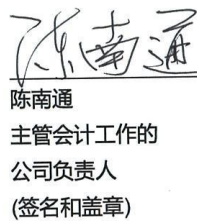 陈南通
陈南通
主管会计工作的
公司负责人
(签名和盖章)